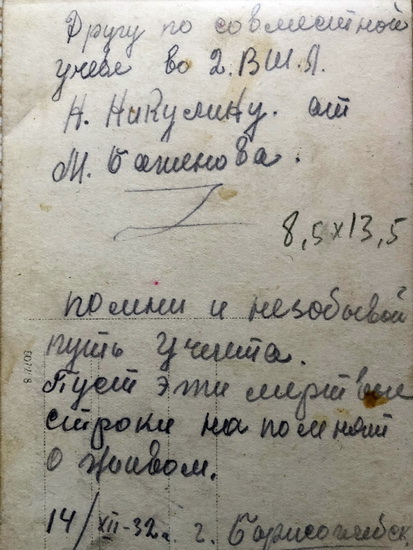 Другу по совместной
учебе во 2.ВШЛ.
Н. Никулину. от
М. Баженова.
8,5х13,5
помни и незобывай
путь учлета.
Пуст эти мертвые
строки на помнят
о живом.
14/XII-32г. г. Борисоглебск.